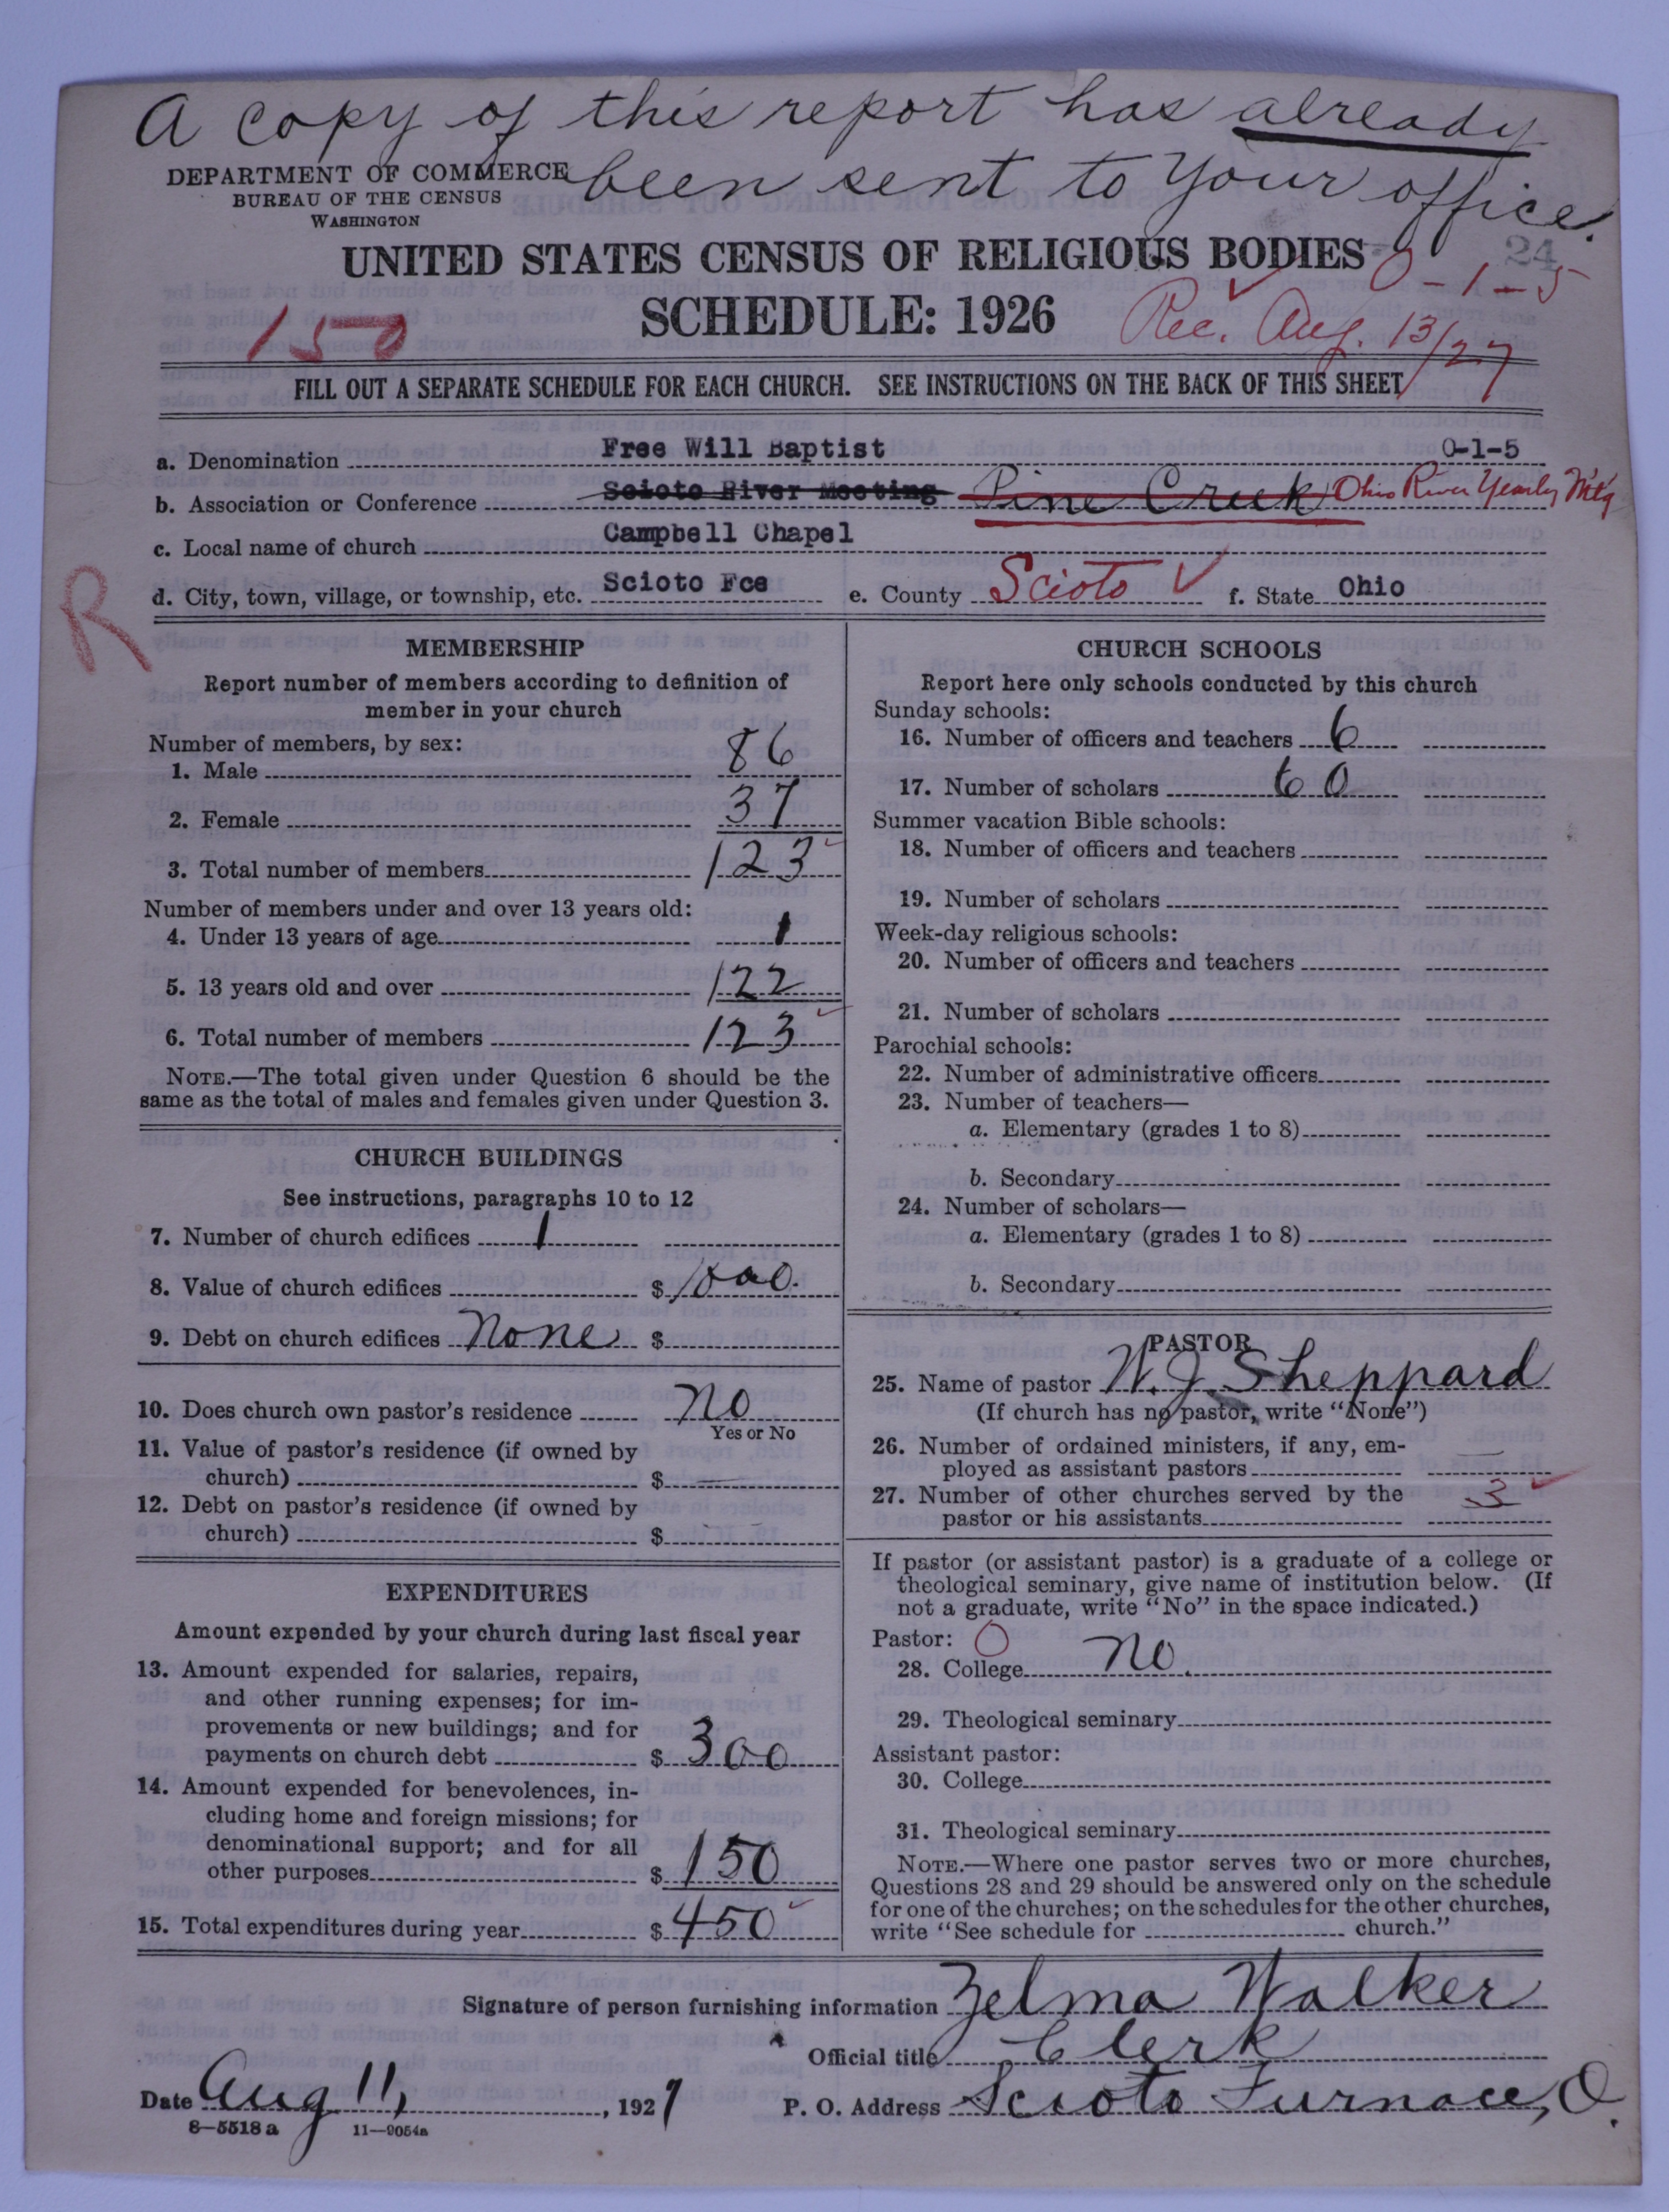 A copy of this report has already
been sent to your office.
DEPARTMENT OF COMMERCE
BUREAU OF THE CENSUS
WASHINGTON
24
UNITED STATES CENSUS OF RELIGIOUS BODIES
0-1-5
SCHEDULE: 1926
150
Rec. Aug. 13/27
FILL OUT A SEPARATE SCHEDULE FOR EACH CHURCH. SEE INSTRUCTIONS ON THE BACK OF THIS SHEET
a. Denomination Free Will Baptist 0-1-5
b. Association or Conference Scioto River Meeting Pine Creek Ohio River Yearly Mtg
c. Local name of church Campbell Chapel
d. City, town, village, or township, etc. Scioto Fce e. County Scioto ✓ f. State Ohio
R
MEMBERSHIP
Report number of members according to definition of
member in your church
Number of members, by sex:
1. Male 86
2. Female 37
3. Total number of members 123
Number of members under and over 13 years old:
4. Under 13 years of age 1
5. 13 years old and over 122
6. Total number of members 123
NOTE.—The total given under Question 6 should be the
same as the total of males and females given under Question 3.
CHURCH BUILDINGS
See instructions, paragraphs 10 to 12
7. Number of church edifices 1
8. Value of church edifices $ 1000.
9. Debt on church edifices None $
10. Does church own pastor's residence No
Yes or No
11. Value of pastor's residence (if owned by
church) $
12. Debt on pastor's residence (if owned by
church) $
EXPENDITURES
Amount expended by your church during last fiscal year
13. Amount expended for salaries, repairs,
and other running expenses; for im-
provements or new buildings; and for
payments on church debt $ 300
14. Amount expended for benevolences, in-
cluding home and foreign missions; for
denominational support; and for all
other purposes $ 150
15. Total expenditures during year $ 450
CHURCH SCHOOLS
Report here only schools conducted by this church
Sunday schools:
16. Number of officers and teachers 6
17. Number of scholars 60
Summer vacation Bible schools:
18. Number of officers and teachers
19. Number of scholars
Week-day religious schools:
20. Number of officers and teachers
21. Number of scholars
Parochial schools:
22. Number of administrative officers
23. Number of teachers—
a. Elementary (grades 1 to 8)
b. Secondary
24. Number of scholars—
a. Elementary (grades 1 to 8)
b. Secondary
PASTOR
25. Name of pastor W. J. Sheppard
(If church has no pastor, write "None")
26. Number of ordained ministers, if any, em-
ployed as assistant pastors —
27. Number of other churches served by the
pastor or his assistants 3
If pastor (or assistant pastor) is a graduate of a college or
theological seminary, give name of institution below. (If
not a graduate, write "No" in the space indicated.)
Pastor: O
28. College No.
29. Theological seminary
Assistant pastor:
30. College
31. Theological seminary
NOTE.—Where one pastor serves two or more churches,
Questions 28 and 29 should be answered only on the schedule
for one of the churches; on the schedules for the other churches,
write "See schedule for church."
Signature of person furnishing information Zelma Walker
Official title Clerk
Date Aug 11, 1927 P. O. Address Scioto Furnace, O.
8—5518 a 11—9054a